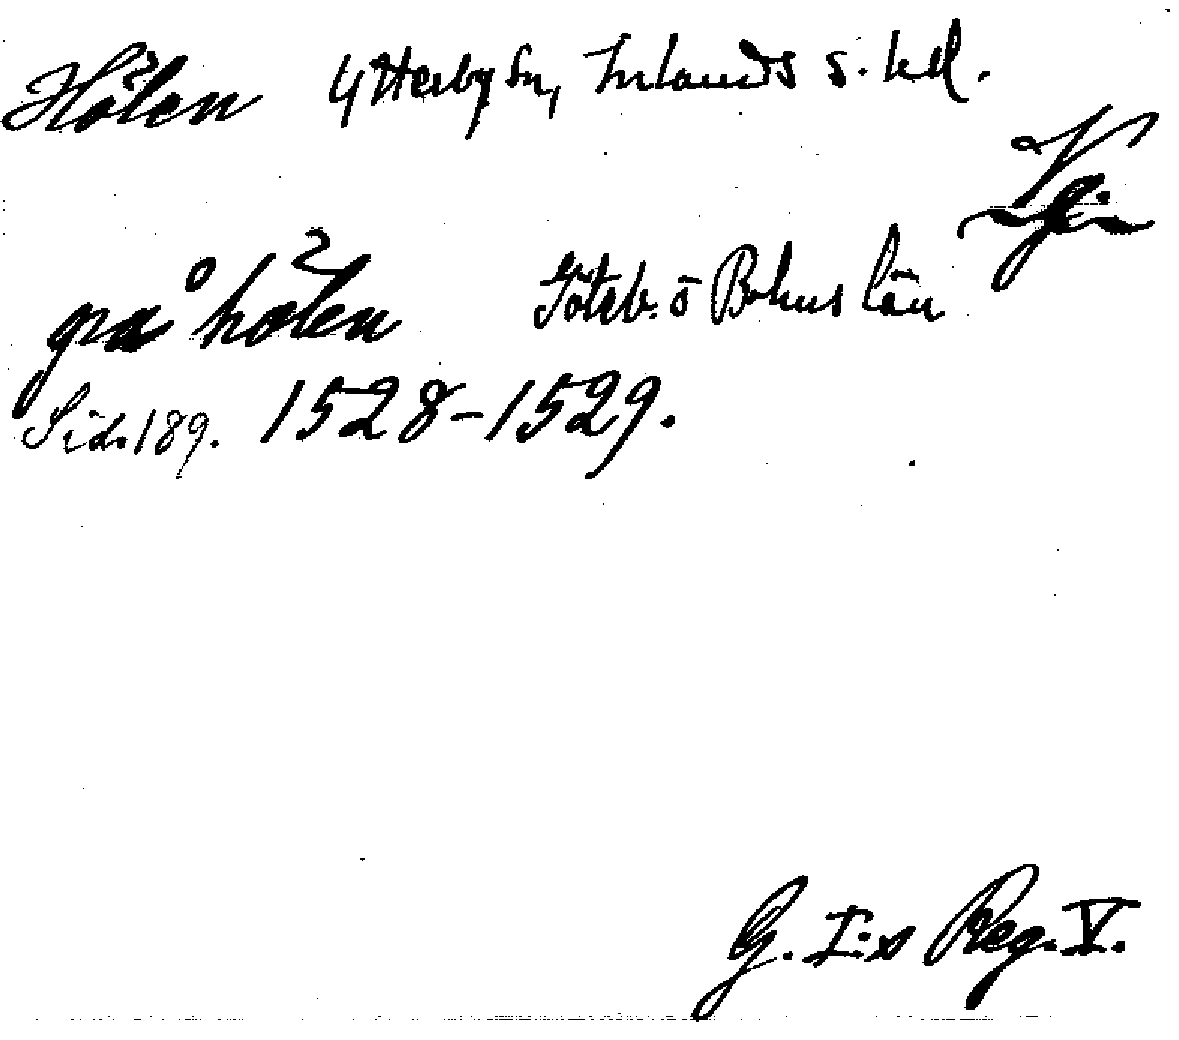 Hålen Ytterby sn, Inlands s. hd.
Vg.
grå hålen Göteb. o Bohus län
Sid. 189. 1528-1529.
G. I:s Reg. V.